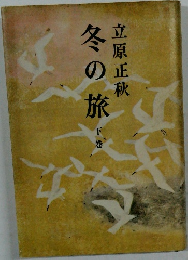 立原正秋
冬の旅
下巻